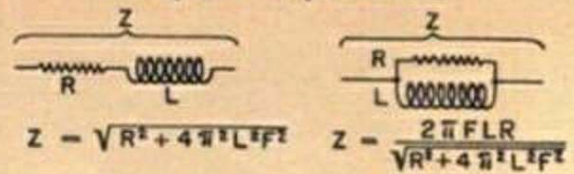 Z Z
R L
R
L
Z = √R² + 4π²L²F²
Z = 2πFLR / √R² + 4π²L²F²